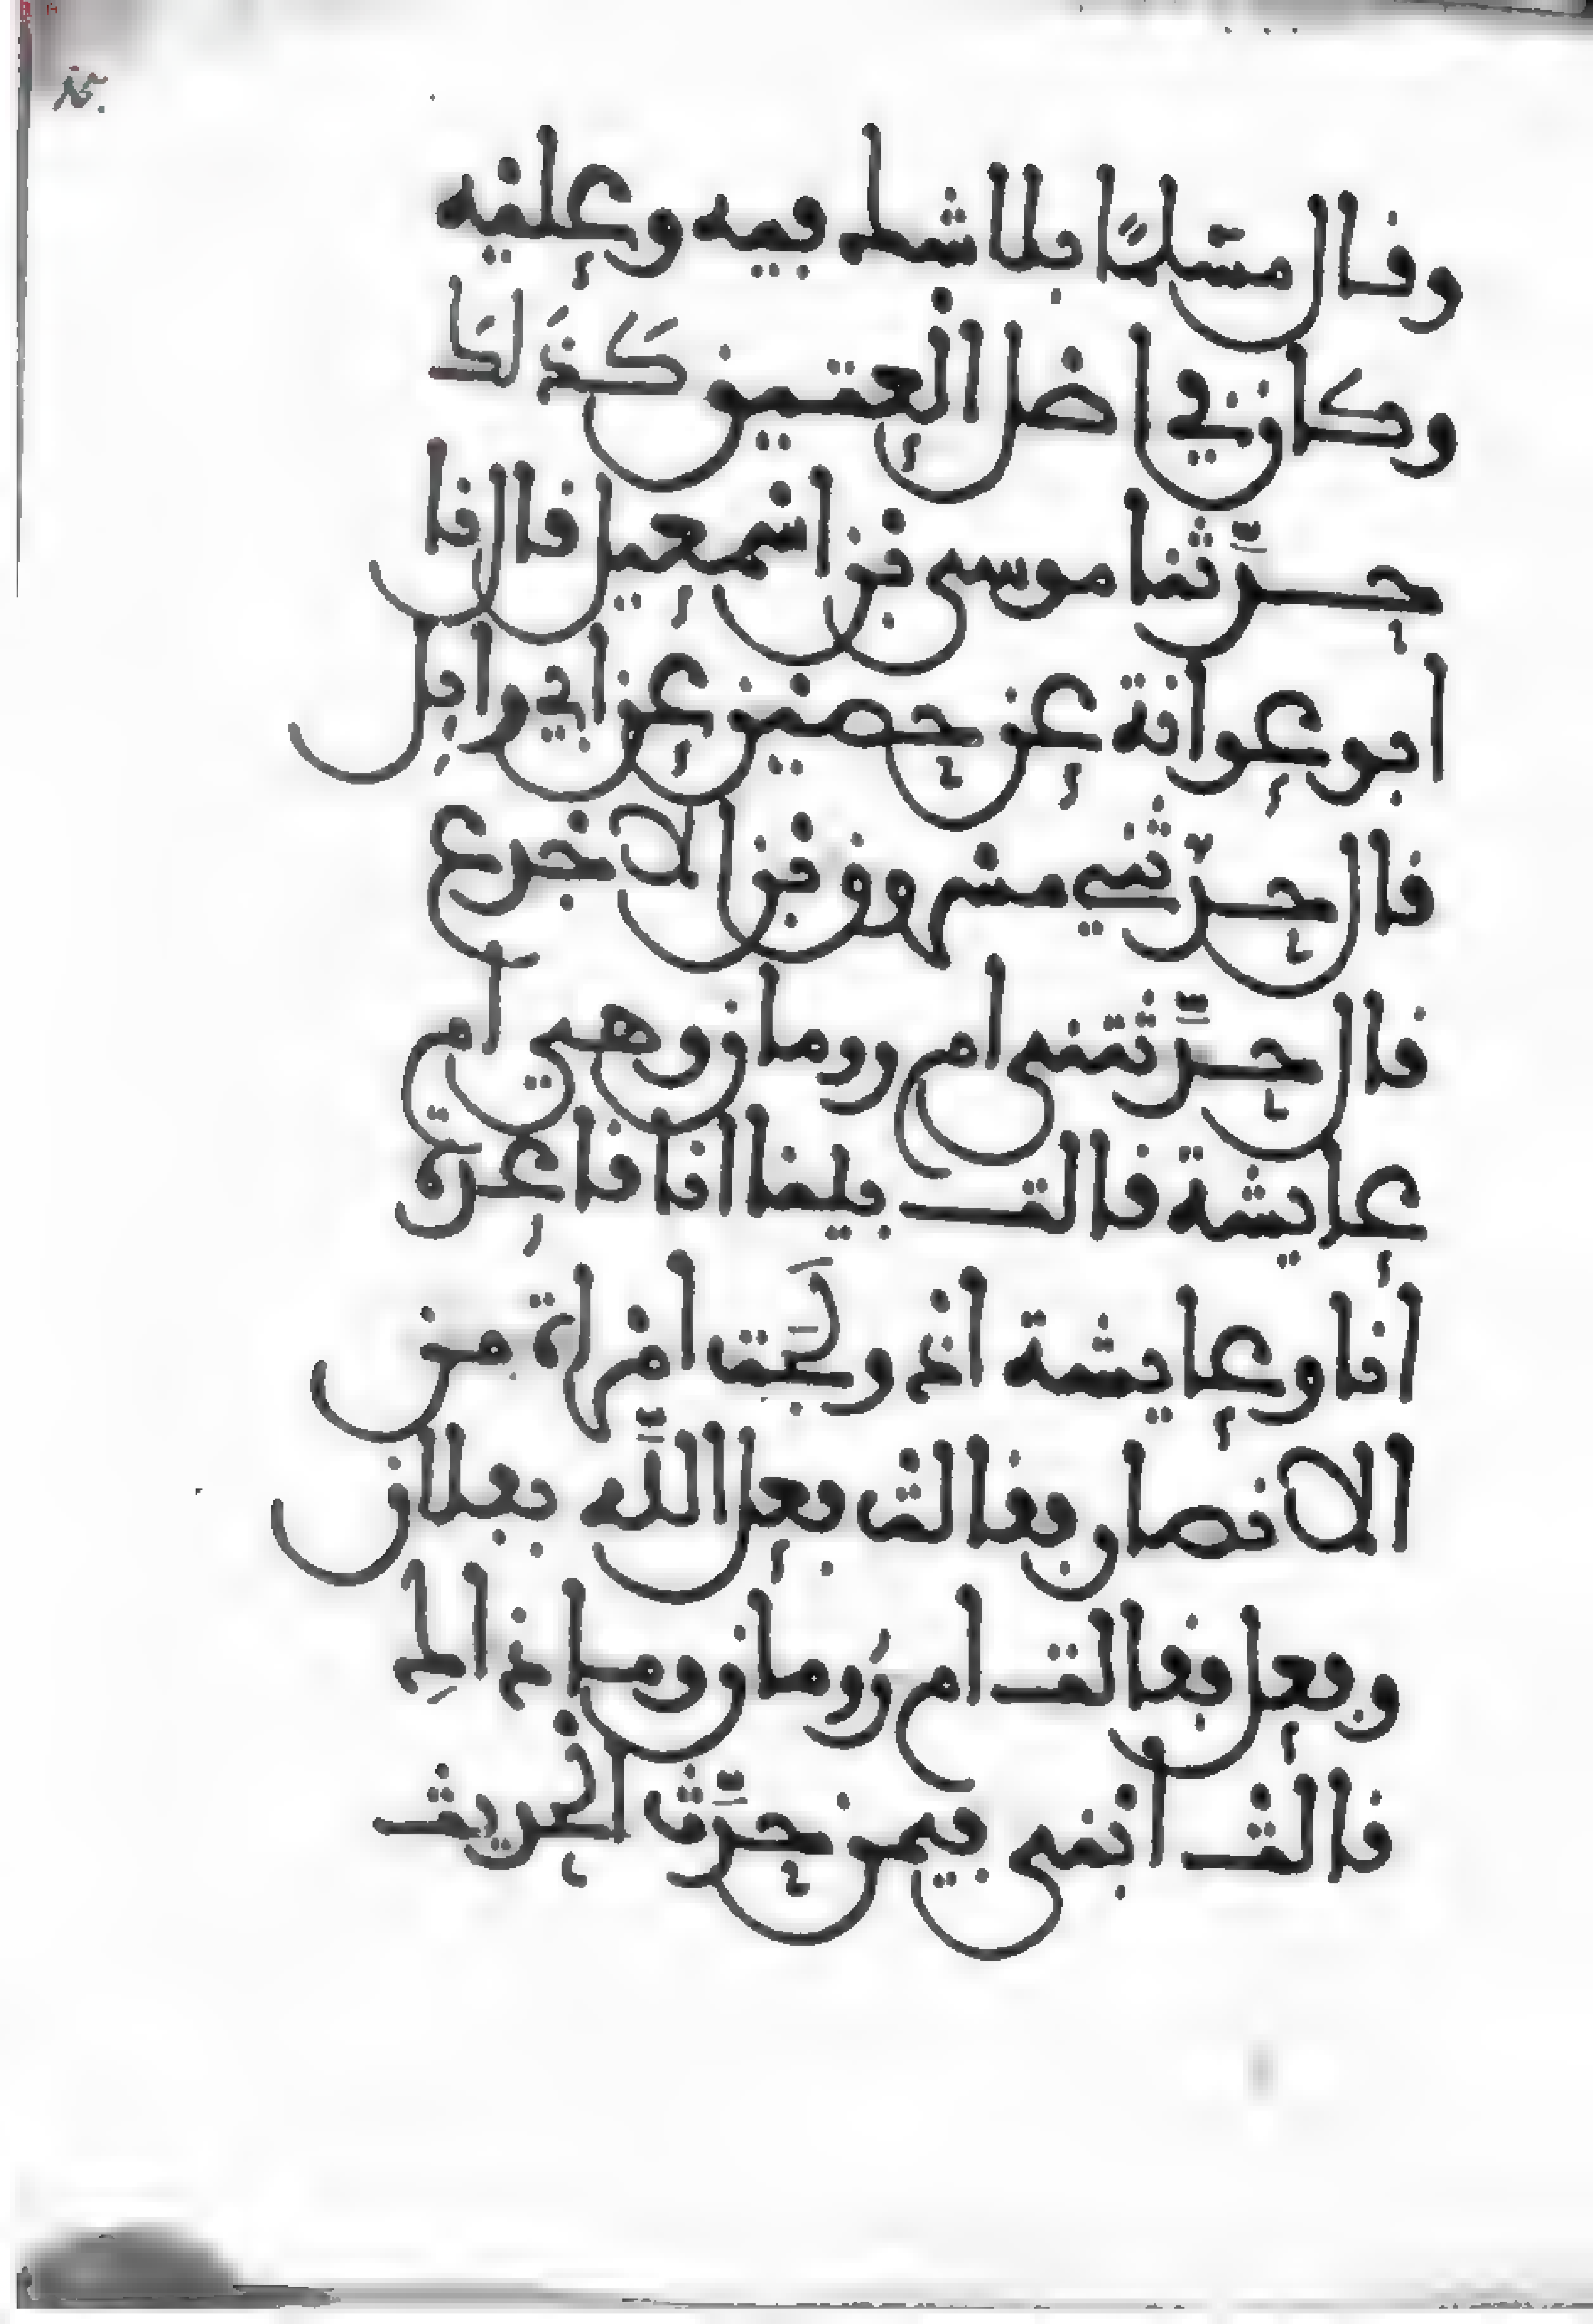 وقال مسلما بلا شك فيه وعليه
وكان في اصل العتيق كذلك
حدثنا موسى بن اسمعيل قال نا
ابو عوانة عن حصين عن ابي وايل
قال حدثني مسروق بن الاجدع
قال حدثتني ام رومان وهي ام
عايشة قالت بينا انا قاعدة
انا وعايشة اذ ولجت امراة من
الانصار فقالت فعل الله بفلان
وفعل فقالت ام رومان وما ذاك
قالت ابني فيمن حدث الحديث